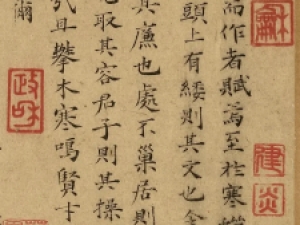 作者賦焉至於寒蟬
頭上有緌則其文也含
其廉也處不巢居則
取其容君子則其操
哉且攀木寒鳴
爾
政和
建
炎